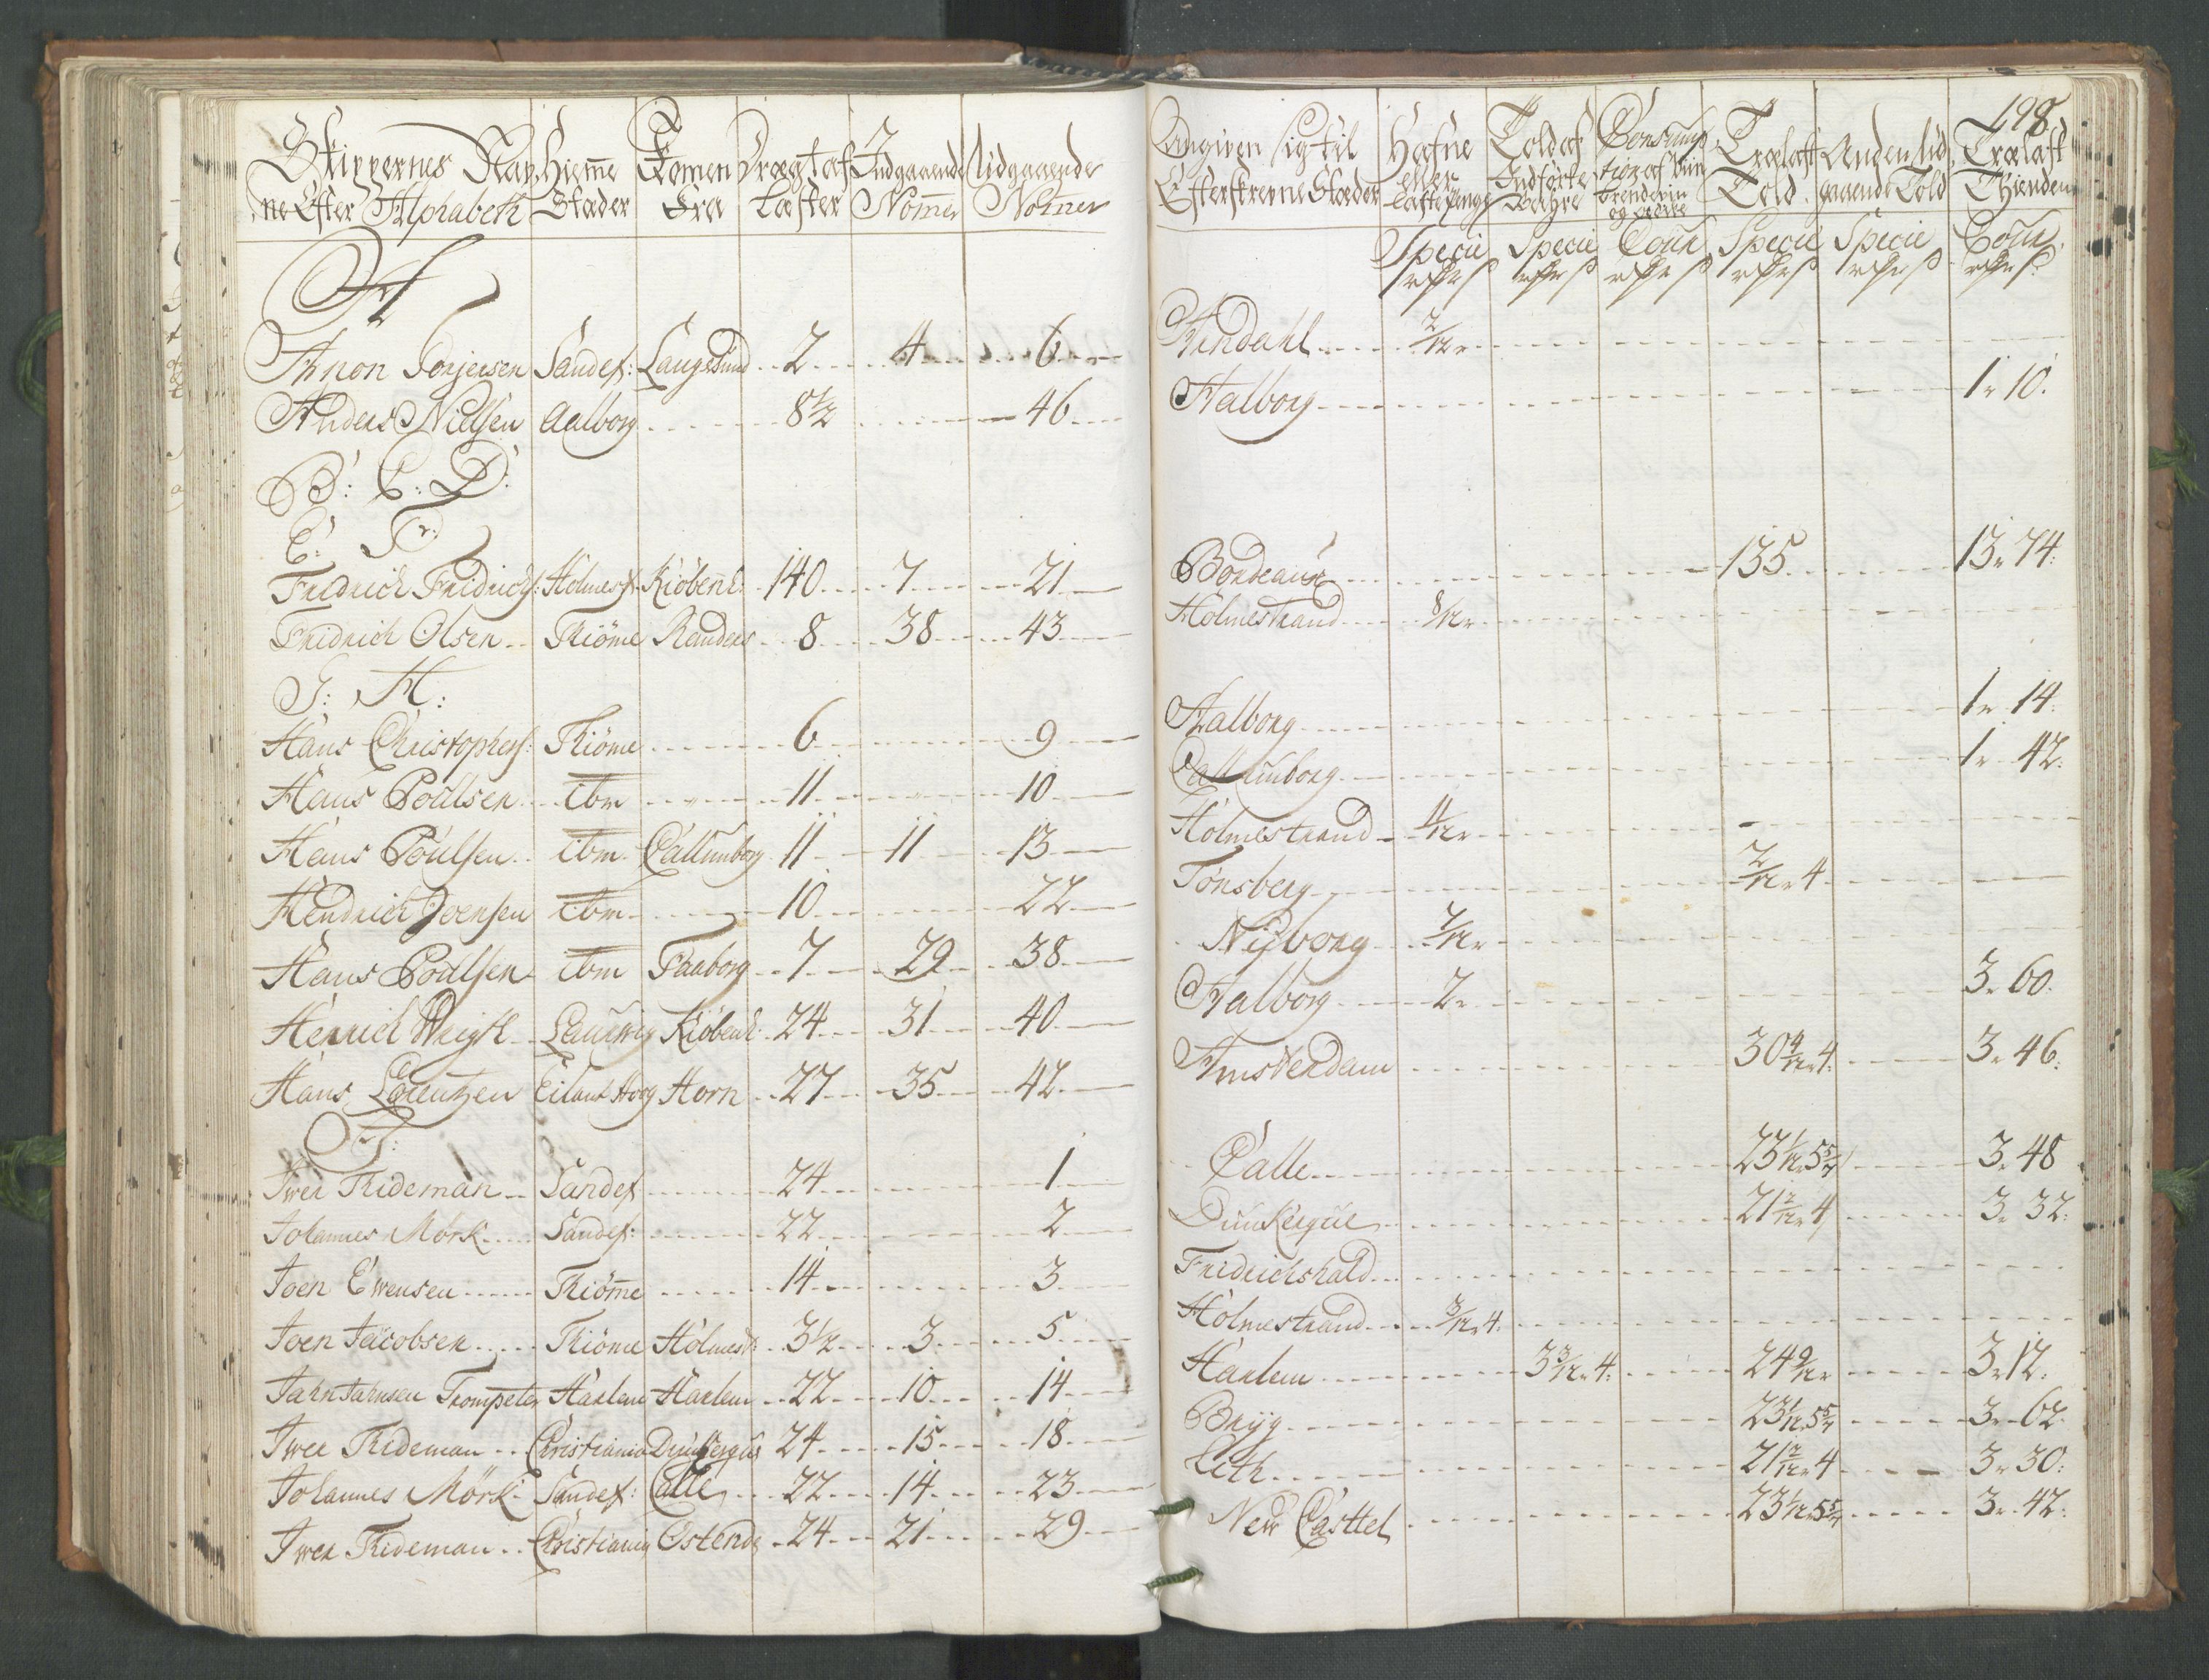 Skippernes Nav,
ne Efter Alphabeth
Hiem̄e
Stæder
Komen
Fra
Drægt af
Læster
Indgaaende
Nom̄er
Udgaaende
Nom̄er
A
Anon Torjersen Sandef: Langesund 2 4 6
Anders Nielsen Aalborg 8½ 46
B: C: D:
E: F:
Fridrich Fridrichs: Holmest Kiöbenh: 140 7 21
Fridrich Olsen Thiöme Randers 8 38 43
G: H:
Hans Christophers: Thiöme 6 9
Hans Poulsen ibm 11 10
Hans Poulsen ibm Callunborg 11 11 13
Hendrich Joensen ibm 10 22
Hans Poulsen ibm Faaborg 7 29 38
Henrich Wrigth Laurwig Kiöbenh: 24 31 40
Hans Lorentzen Eiland Hoog Horn 27 35 42
J:
Iver Thideman Sandef 24 1
Johannes Mörk Sandef: 22 2
Joen Ewensen Thiöm̄e 14 3
Joen Jacobsen Thiöme Holmest: 3½ 3 5
Jahn Jahnsen Trompeter Harlem Harlem 22 10 14
Iver Thideman Christiania Dunkerque 24 15 18
Johannes Mörk Sandef: Calle 22 14 23
Iver Thideman Christiania Ostende 24 21 29
198
Angiven sig til
Efterskrevne Stæder
Hafne
eller
Lastepenge
Told af
Indførte
Wahre
Consump
tion af Viin
Brendeviin
og Edike
Trælast
Told
Anden Ud,
gaaende Told
Trælast
Thienden
Specie Specie Cour Specie Specie Cour
Arendahl 2/12
Aalborg 1 10.
Bordeaux 135 13 74
Holmestrand 8/12
Aalborg 1 14
Callunborg 1 42
Holmestrand 11/12
Tönsberg 2/12 4
Nyborg 7/12
Aalborg 2 3 60.
Amsterdam 30 4/12 4 3 46.
Calle 23 1/12 5 5/7 3 48
Dunkerque 21 2/12 4 3 32.
Fridrichshald
Holmestrand 3/12 4
Harlem 3 3/12 4 24 9/12 3 12.
Bryg 23 1/12 5 5/7 3 62.
Leth 21 2/12 4 3 30.
New Casttel 23 1/12 5 5/7 3 42.